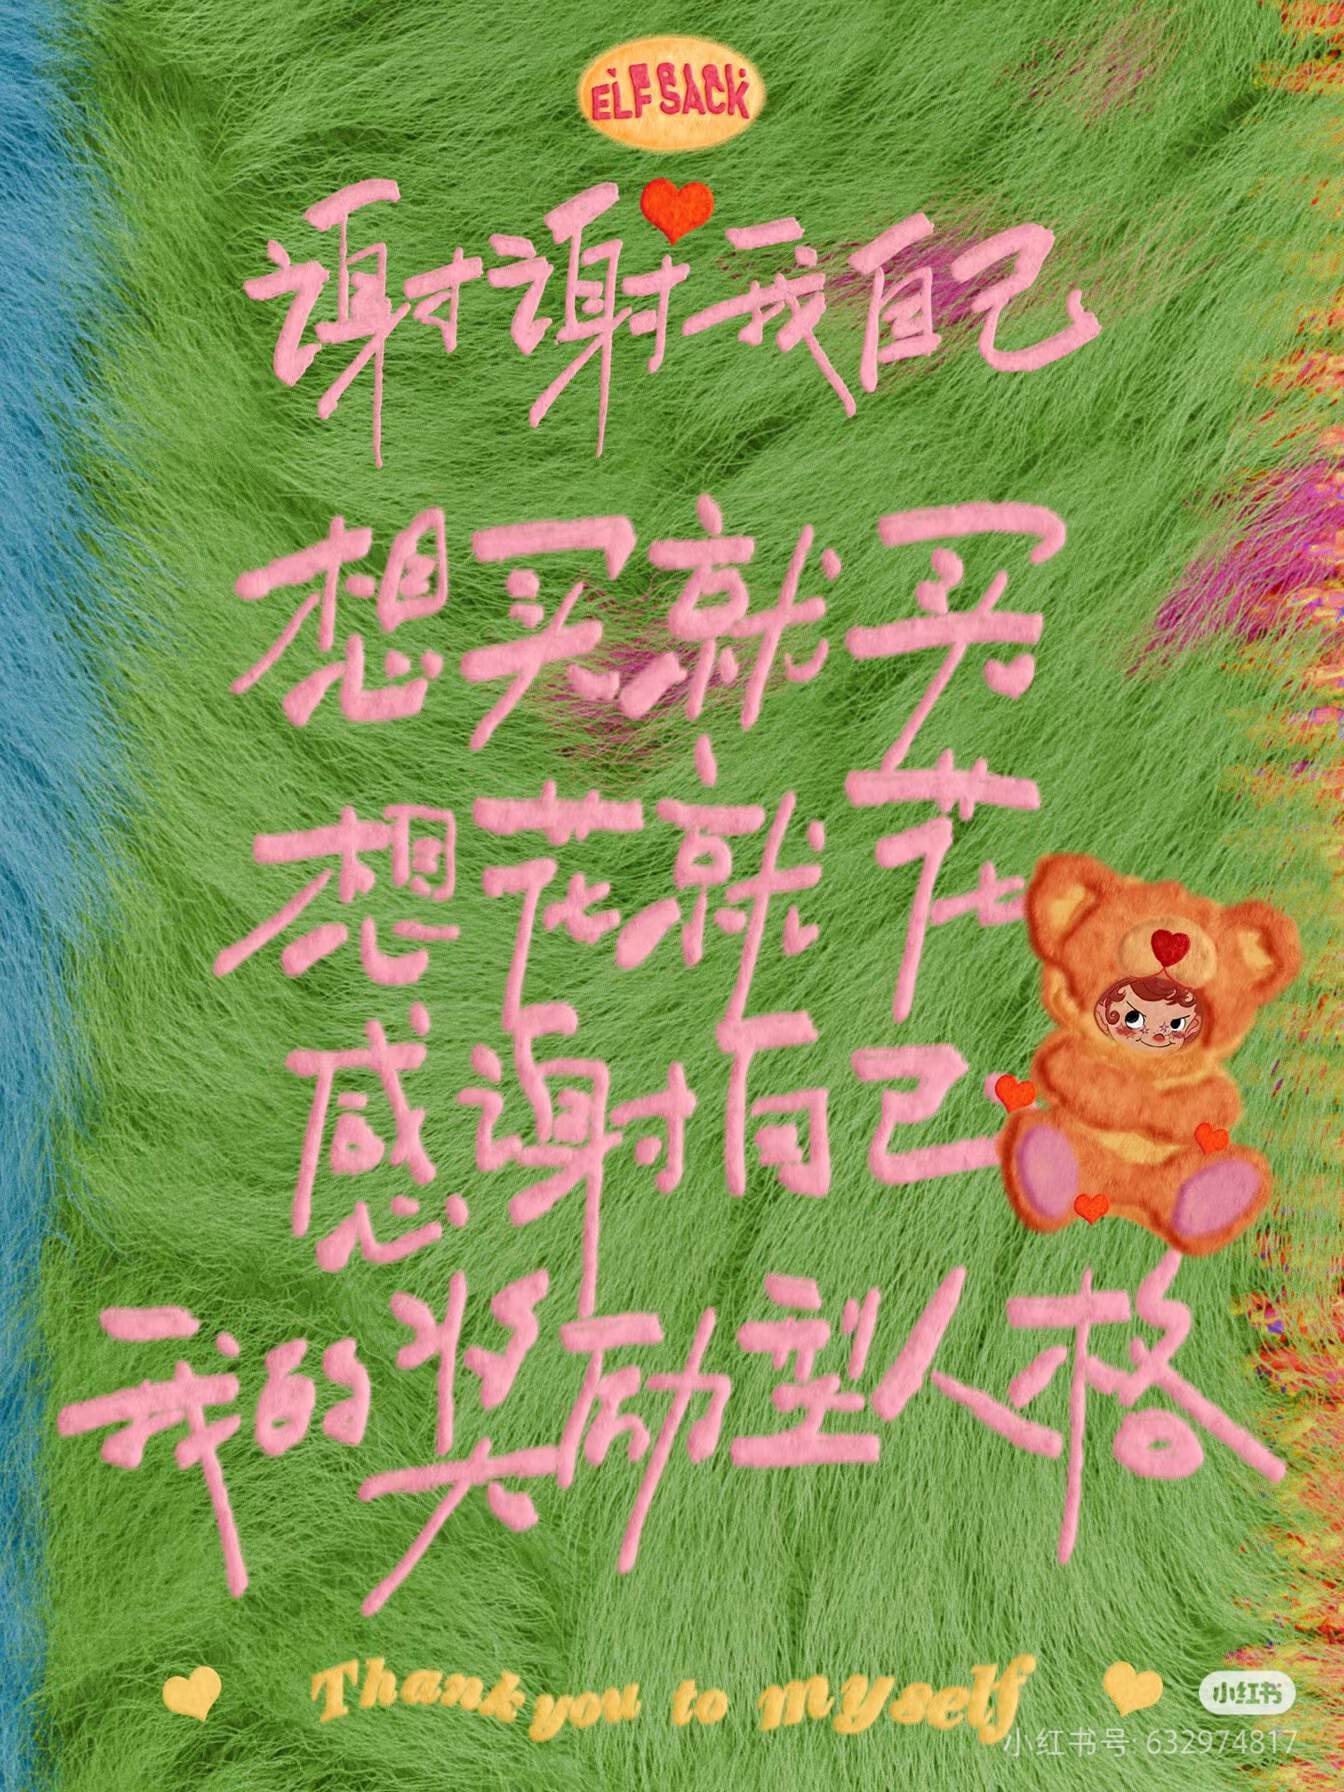 ELF SACK
谢谢我自己
想买就买
想花就花
感谢自己
我的奖励型人格
Thank you to myself
小红书
小红书号: 632974817